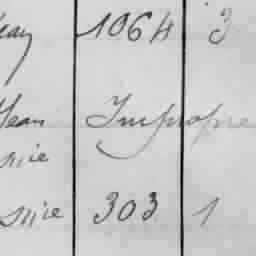 eay 1064 3
Jean Impropre
nie
snie 303 1